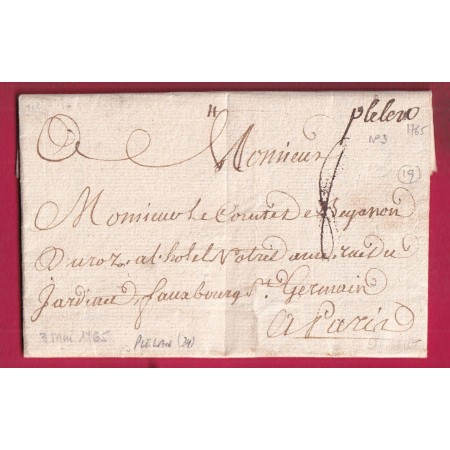 plelen
1765
N°3
A Monsieur
19
Monsieur le Comte de
Duroz a l'hotel Notre dame rue du
Jardinet fauxbourg St. Germain
A Paris
3 mai 1765
PLELAN (34)